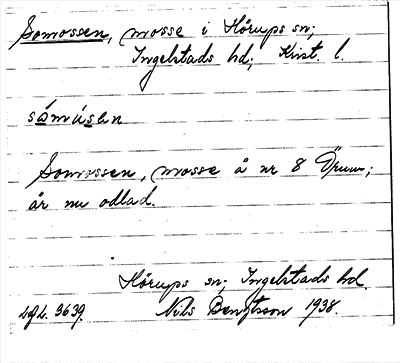 Somossen, mosse i Hörups sn;
Ingelstads hd; Krist. l.
sómúsen
Somossen, mosse å nr 8 Örum;
är nu odlad.
Hörups sn; Ingelstads hd.
Nils Bengtsson 1938.
3639.